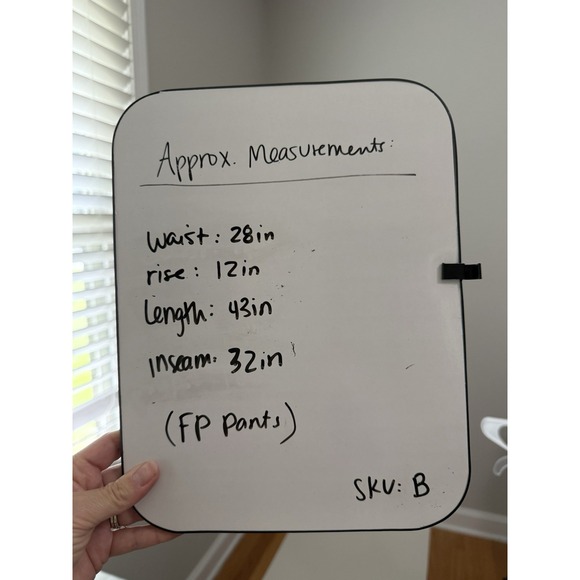 Approx. Measurements:
waist: 28in
rise: 12in
Length: 43in
inseam: 32in
(FP Pants)
SKU: B